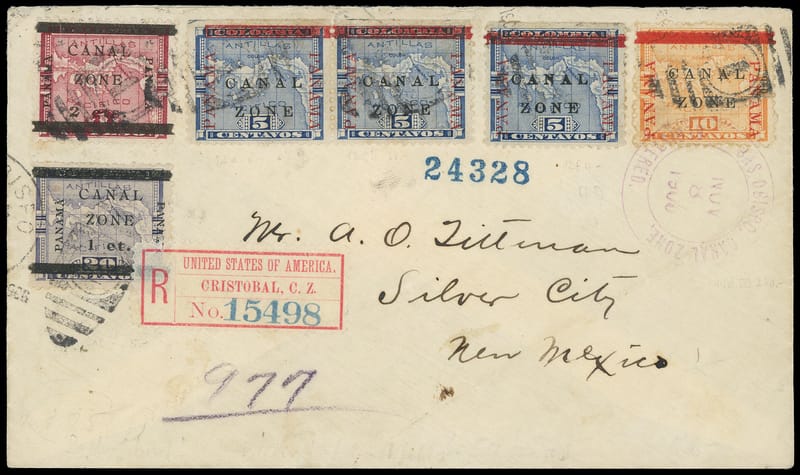 CANAL
ZONE
2
PANAMA
ANTILLAS
CANAL
ZONE
5
CENTAVOS
ANTILLAS
CANAL
ZONE
5
CENTAVOS
ANTILLAS
CANAL
ZONE
5
CENTAVOS
CANAL
ZONE
PANAMA
10
CENTAVOS
ANTILLAS
CANAL
ZONE
1 ct.
PANAMA
24328
CANAL ZONE.
NOV
8
Mr. A. O. Tittman
Silver City
New Mexico
R
UNITED STATES OF AMERICA.
CRISTOBAL, C. Z.
No. 15498
977